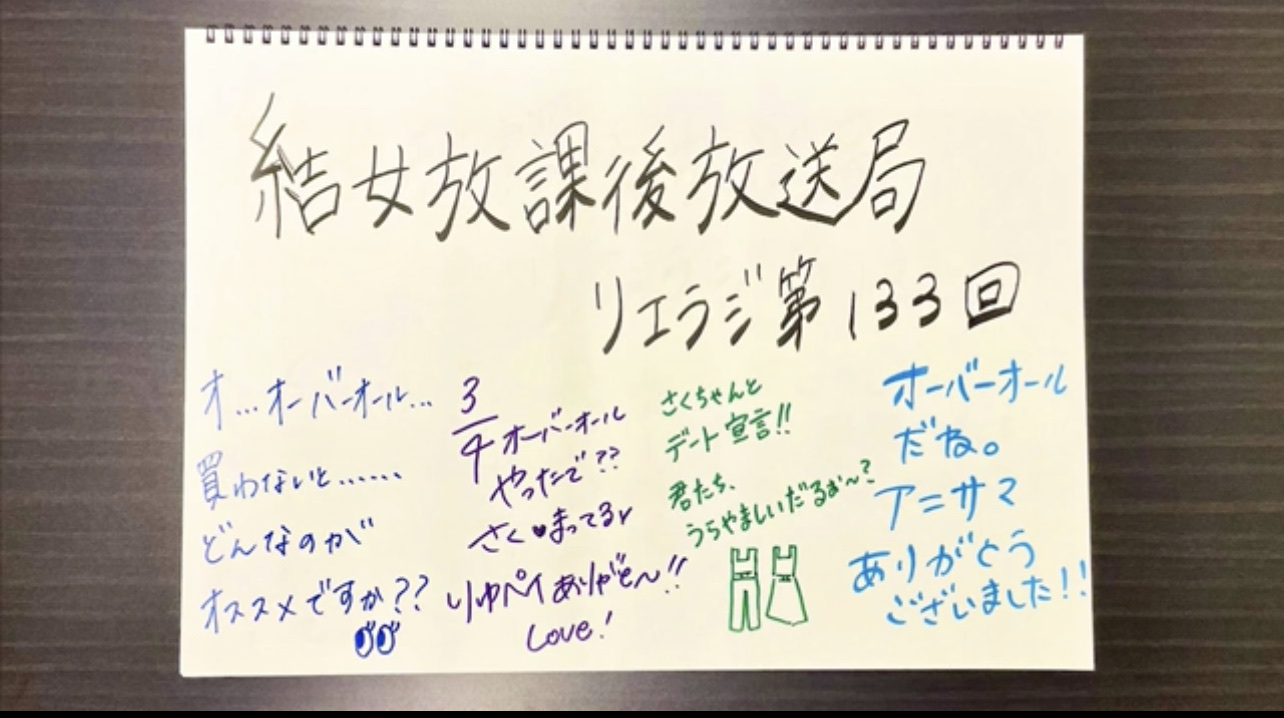 結女放課後放送局
リエラジ第133回
オ…オーバーオール…
買わないと……
どんなのが
オススメですか??
3/4オーバーオール
やったで??
さく♥まってるv
りゆペイありがと〜!!
Love!
さくちゃんと
デート宣言!!
君たち、
うらやましいだろぉ〜?
オーバーオール
だね。
アニサマ
ありがとう
ございました!!